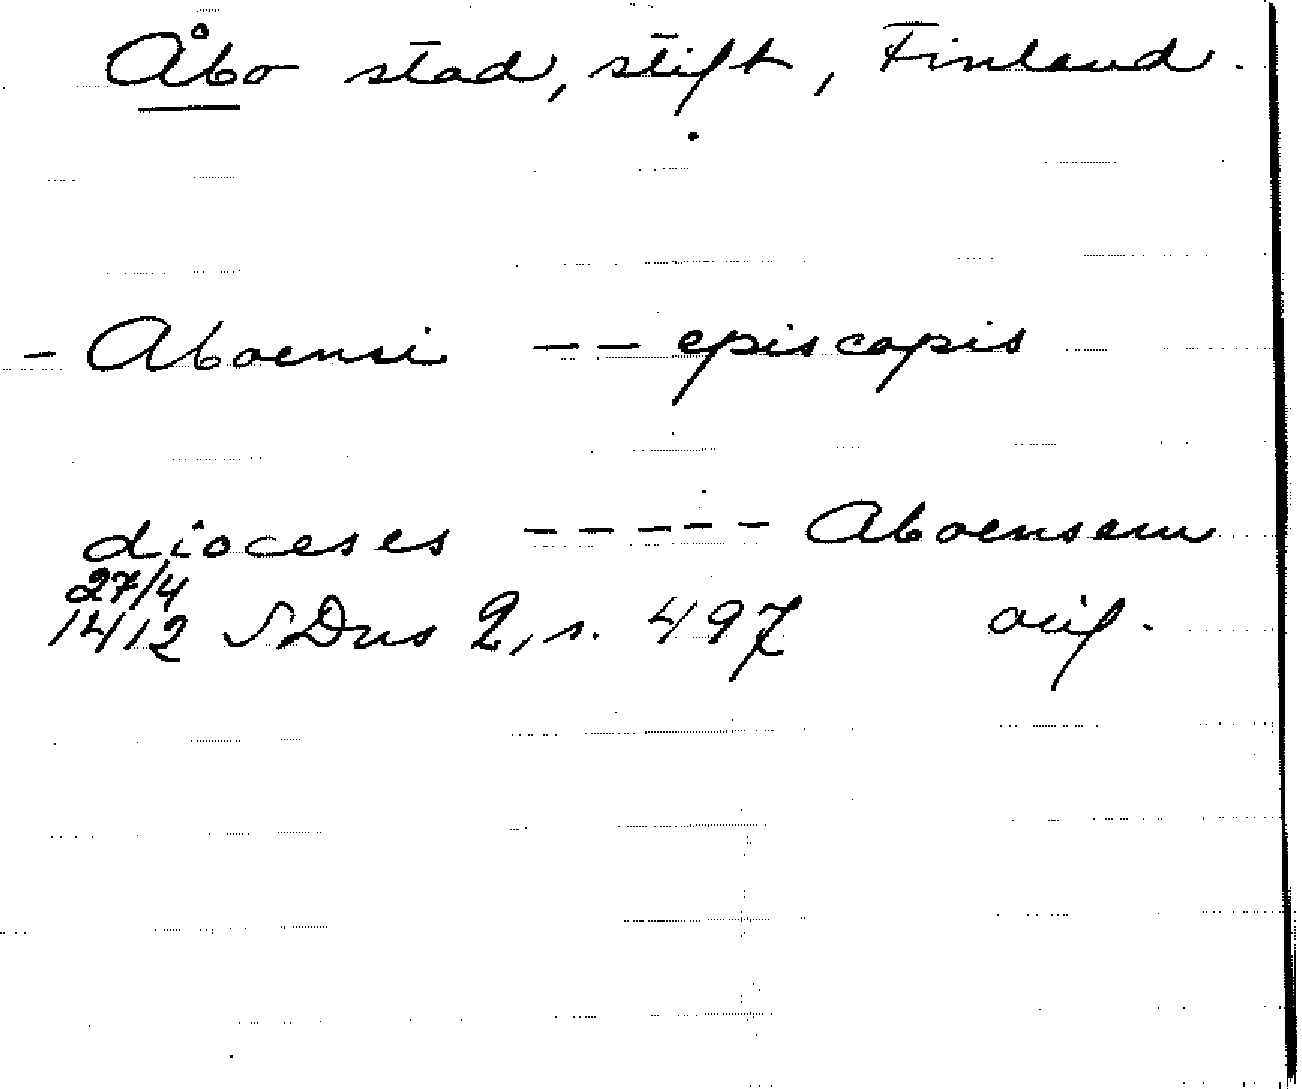 Åbo stad, stift, Finland.
- Aboensi -- episcopis
dioceses ----- Aboensem
27/4
1412 SDns 2, s. 497 orig.